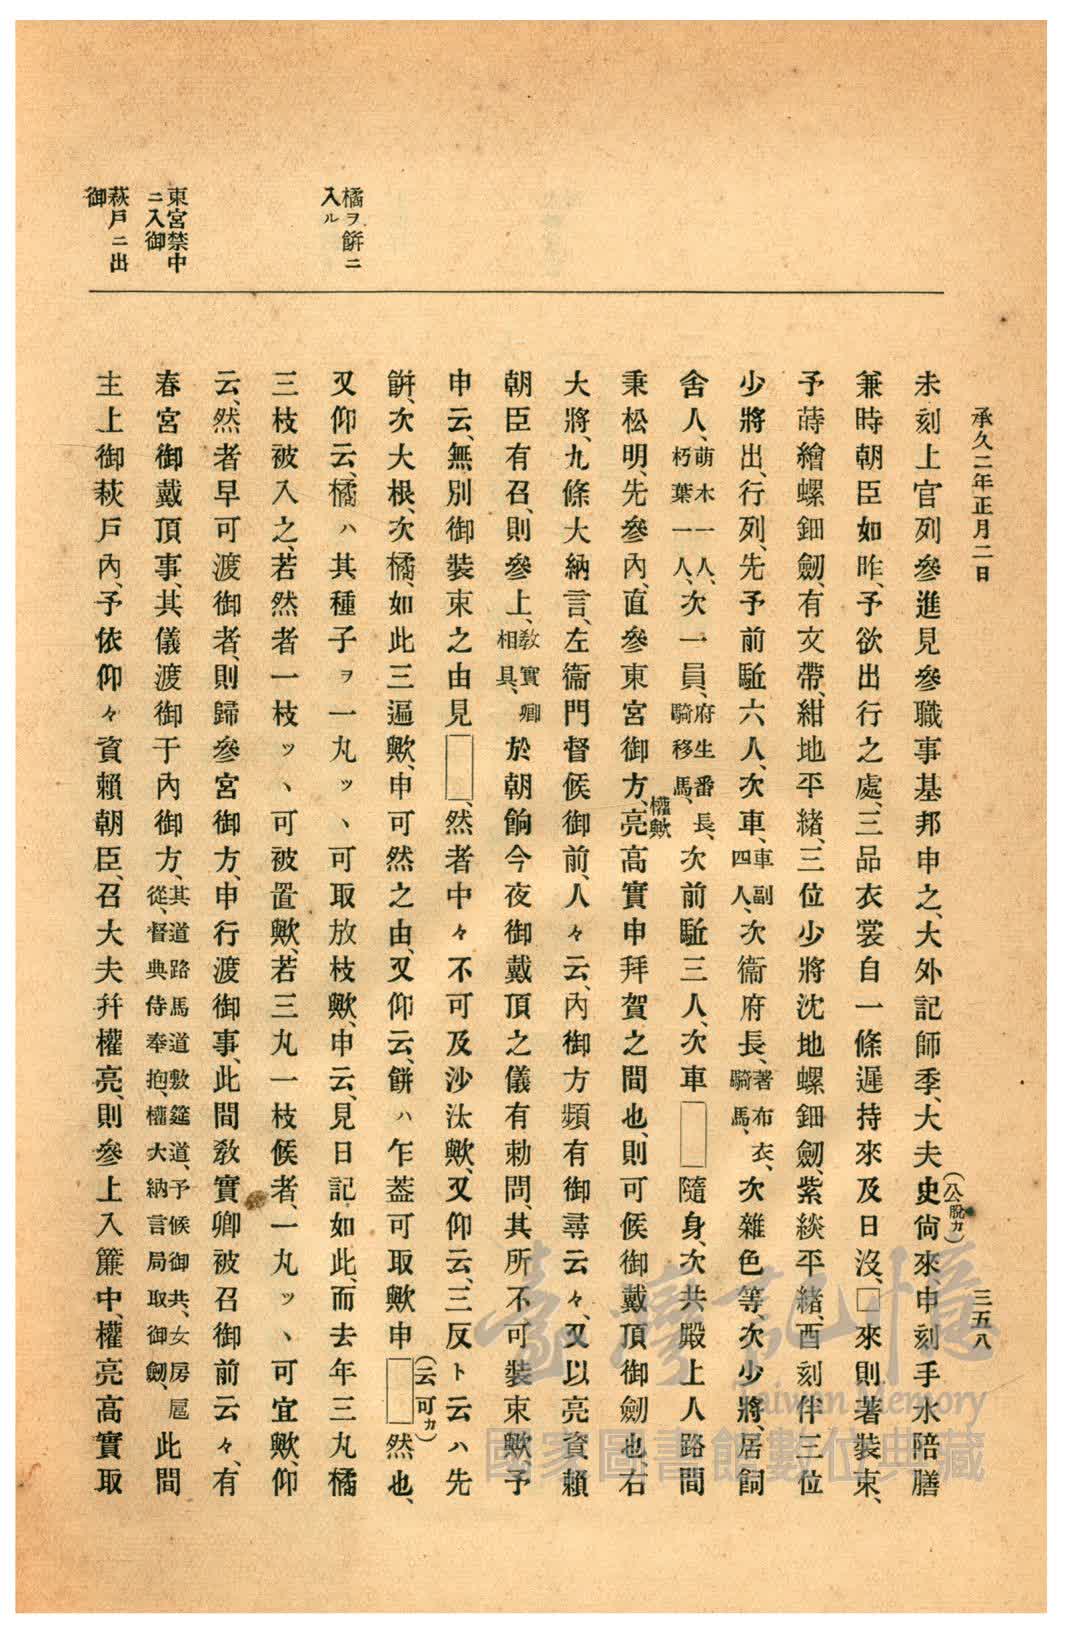 承久二年正月二日
三五八
未刻上官列參進見參職事基邦申之、大外記師季、大夫史尙來申刻手水陪膳
(公脫カ)
兼時朝臣如昨、予欲出行之處、三品衣裳自一條遲持來及日沒、□來則著裝束、
予蒔繪螺鈿劒、有文帶、紺地平緖、三位少將沈地螺鈿劒、紫緂平緖、酉刻伴三位
少將出、行列、先予前駈六人、次車、車副四人、次衞府長、著布衣、騎馬、次雜色等、次少將、居飼
舍人、萌木一人、朽葉一人、次一員、府生番長、騎移馬、次前駈三人、次車□隨身、次共殿上人路間
秉松明、先參內、直參東宮御方、亮高實申拜賀之間也、則可候御戴頂御劒也、右
權歟
大將、九條大納言、左衞門督候御前、人々云、內御方頻有御尋云々、又以亮資賴
朝臣有召、則參上、敎實卿相具、於朝餉今夜御戴頂之儀有勅問、其所不可裝束歟、予
申云、無別御裝束之由見□、然者中々不可及沙汰歟、又仰云、三反ト云ハ先
餠、次大根、次橘、如此三遍歟、申可然之由、又仰云、餠ハ乍葢可取歟申□然也、
(云可カ)
又仰云、橘ハ其種子ヲ一丸ッヽ可取放枝歟、申云、見日記如此、而去年三丸橘
三枝被入之、若然者一枝ッヽ可被置歟、若三丸一枝候者、一丸ッヽ可宜歟、仰
云、然者早可渡御者、則歸參宮御方、申行渡御事、此間敎實卿被召御前云々、有
春宮御戴頂事、其儀渡御于內御方、其道路馬道敷筵道、予候御共、女房扈從、督典侍奉抱、權大納言局取御劒、此間
主上御萩戶內、予依仰々資賴朝臣、召大夫幷權亮、則參上入簾中、權亮高實取
橘ヲ餠ニ
入ル
東宮禁中
ニ入御
萩戶ニ出
御
臺灣記憶
Taiwan Memory
國家圖書館數位典藏